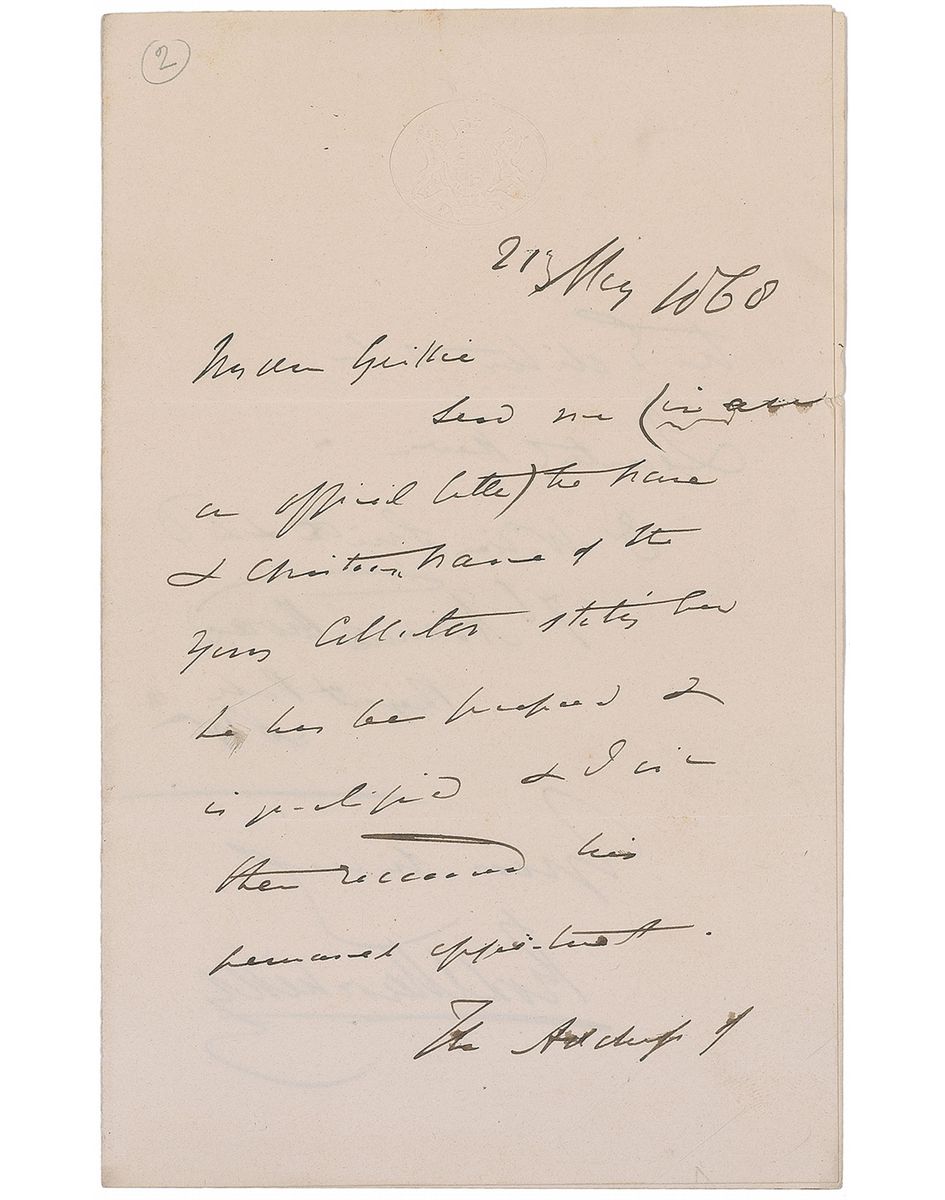 2
21 May 1868
My dear Geikie
Send me (in
an official letter) the name
& Christian name of the
young Collector stating how
he has been prepared &
is qualified & I will
then recommend his
permanent appointment.
The Address of